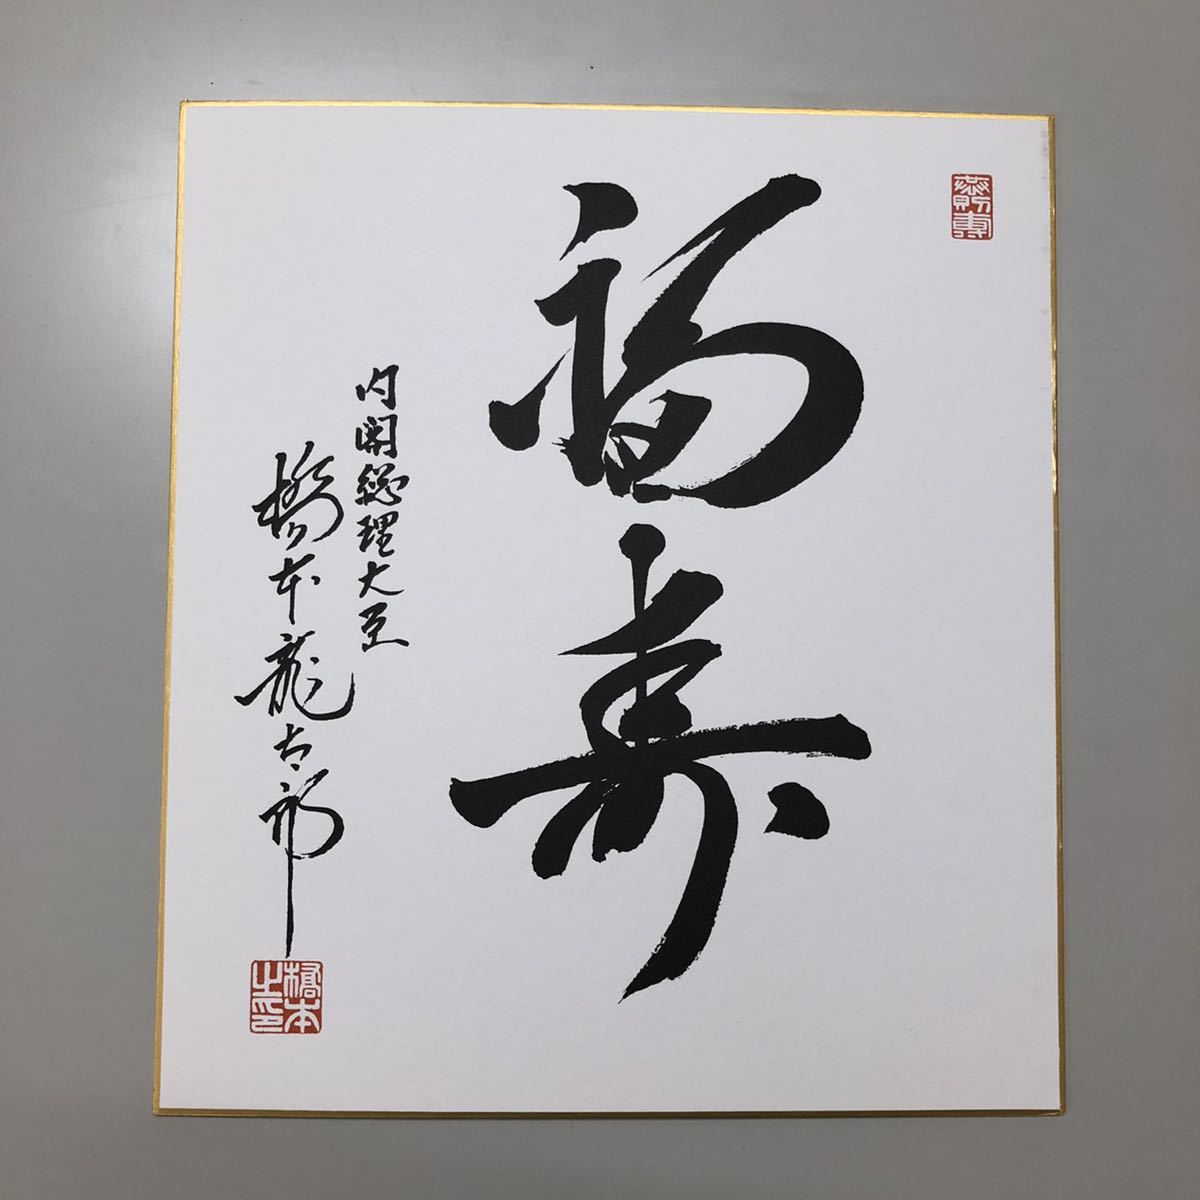 福寿
内閣総理大臣
橋本龍太郎
橋本之印